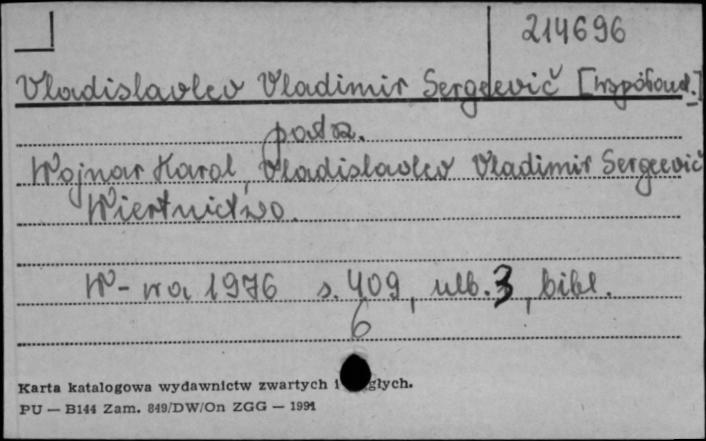 214696
Vladislavlev Vladimir Sergeevič [współaut.]
patrz.
Wojnar Karol, Vladislavlev Vladimir Sergeevič
Wiertnictwo.
W-wa 1976 s. 409, nlb. 3, bibl.
6
Karta katalogowa wydawnictw zwartych i głych.
PU — B144 Zam. 849/DW/On ZGG — 1991